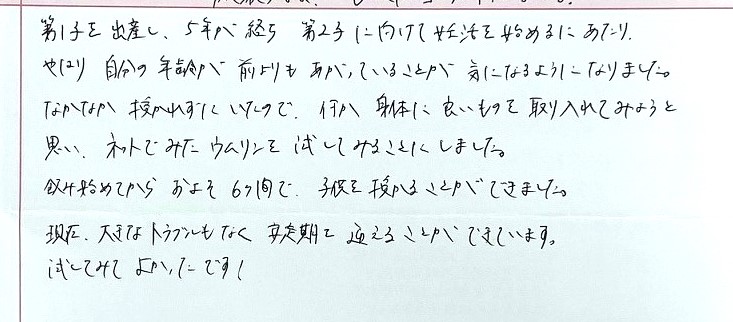 第1子を出産し、5年が経ち 第2子に向けて妊活を始めるにあたり、
やはり 自分の年齢が 前よりも あがっていることが 気になるようになりました。
なかなか 授かれずにいたので、何か 身体に良いものを取り入れてみようと
思い、ネットでみた ウムリンを 試してみることにしました。
飲み始めてから およそ 6ヶ間で、子供を授かることができました。
現在、大きなトラブルもなく 安定期を迎えることができています。
試してみて よかったです!